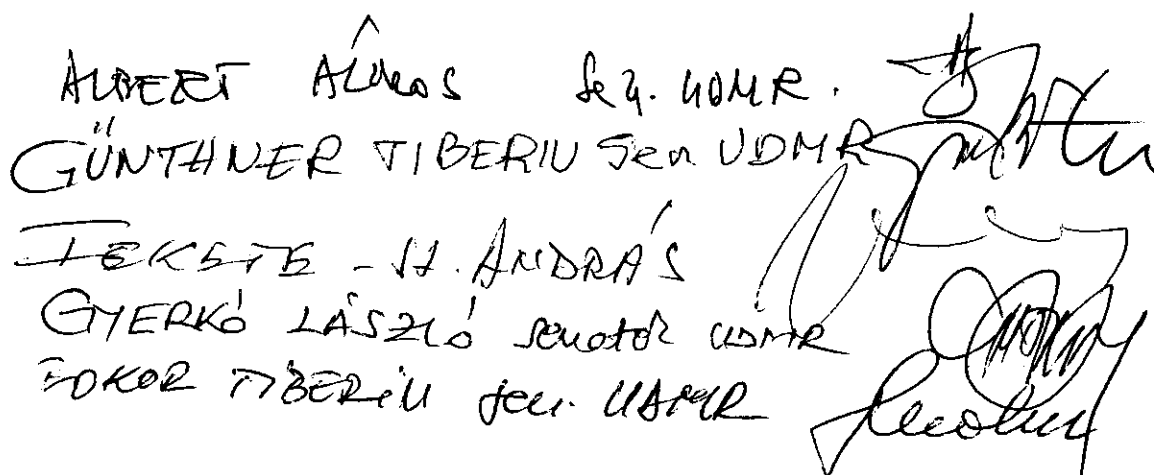 ALBERT ÁLMOS Sen. UDMR.
GÜNTHNER TIBERIU Sen. UDMR
FEKETE - SZ. ANDRÁS
GYERKÓ LÁSZLÓ senator UDMR
BOKOR TIBERIU sen. UDMR